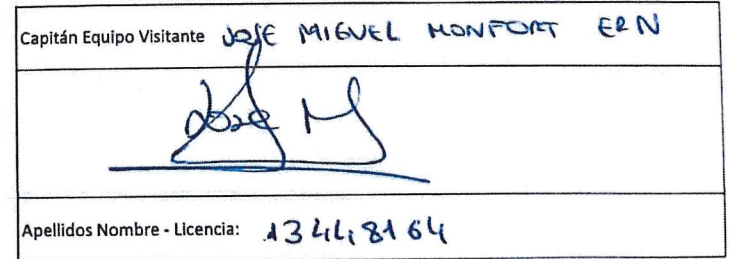 Capitán Equipo Visitante JOSE MIGUEL MONFORT ERN
Jose M
Apellidos Nombre - Licencia: 13448164